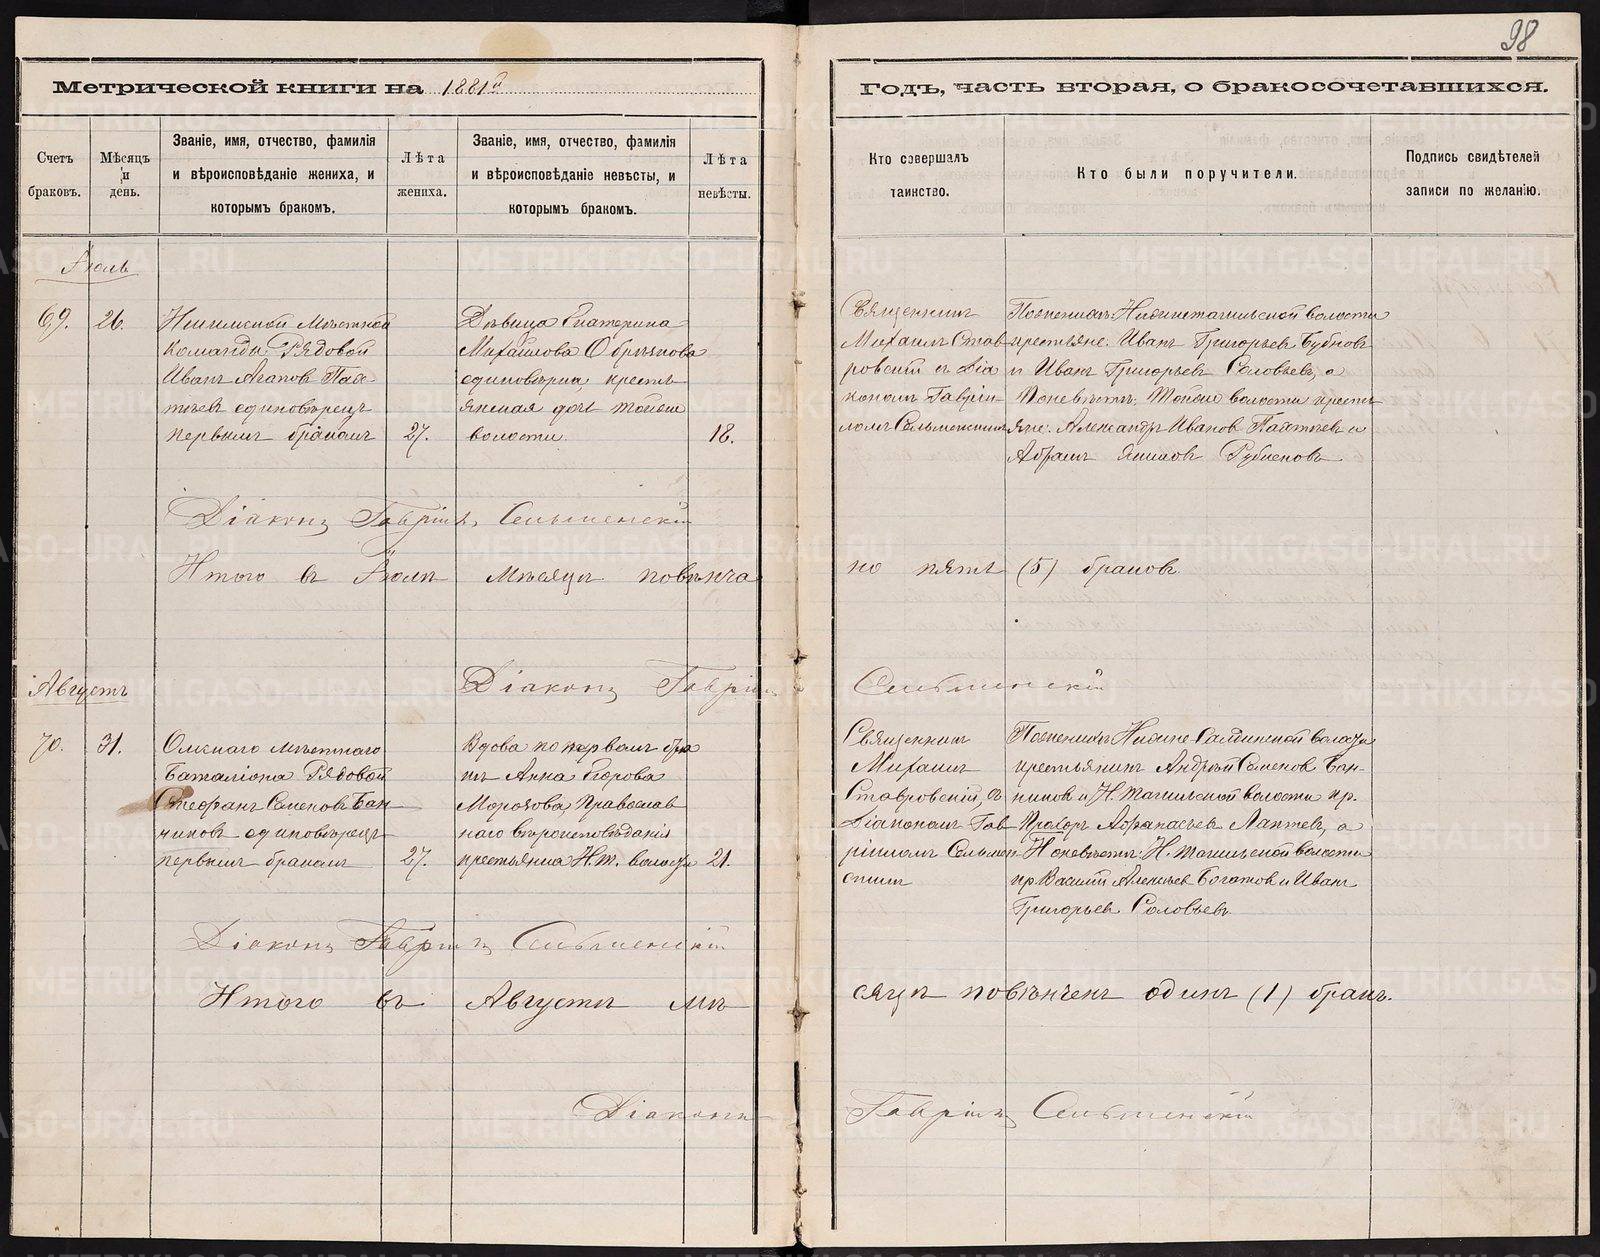 98
Метрической книги на 1881й
Годъ, часть вторая, о бракосочетавшихся.
Счетъ браковъ.
Мѣсяцъ и день.
Званіе, имя, отчество, фамилія
и вѣроисповѣданіе жениха, и
которымъ бракомъ.
Лѣта жениха.
Званіе, имя, отчество, фамилія
и вѣроисповѣданіе невѣсты, и
которымъ бракомъ.
Лѣта невѣсты.
Кто совершалъ
таинство.
Кто были поручители.
Подпись свидѣтелей
записи по желанію.
Іюль
69.
26.
Ишимской Мѣстной
команды Рядовой
Иванъ Агаповъ Пах-
тѣевъ единовѣрецъ
первымъ бракомъ
27.
Дѣвица Екатерина
Михайлова Обрѣзкова
единовѣрка, кресть
янская дочь тойже
волости
18.
Священникъ
Михаилъ Став
ровскій съ Діа
кономъ Гавріи-
ломъ Сельменскимъ
Поженихѣ: Нижнетагильской волости
крестьяне: Иванъ Григорьевъ Бубновъ
и Иванъ Григорьевъ Соловьевъ, а
Поневѣстѣ: Тойже волости кресть
яне: Александръ Ивановъ Пахтѣевъ и
Абрамъ Якимовъ Рубцовъ
Діаконъ Гавріилъ Сельменскій
Итого въ Іюлѣ мѣсяцѣ повѣнча
но пять (5) браковъ.
Діаконъ Гавріилъ Сельменскій
Августъ
70.
31.
Омскаго мѣстнаго
Баталіона Рядовой
Стефанъ Семеновъ Бан-
никовъ единовѣрецъ
первымъ бракомъ
27.
Вдова по первомъ бра
кѣ Анна Егорова
Морозова, Православ
наго вѣроисповѣданія
крестьянка Н.Т. волости
21.
Священникъ
Михаилъ
Ставровскій, съ
Діакономъ Гав
ріиломъ Сельмен
скимъ
Поженихѣ Нижне Салдинской волости
крестьянинъ Андрей Семеновъ Бан-
никовъ и Н. Тагильской волости кр.
Прохоръ Афанасьевъ Лаптевъ, а
Поневѣстѣ: Н. Тагильской волости
кр. Василій Алексѣевъ Богатовъ и Иванъ
Григорьевъ Соловьевъ.
Діаконъ Гавріилъ Сельменскій
Итого въ Августѣ мѣ
сяцѣ повѣнченъ одинъ (1) бракъ.
Діаконъ Гавріилъ Сельменскій